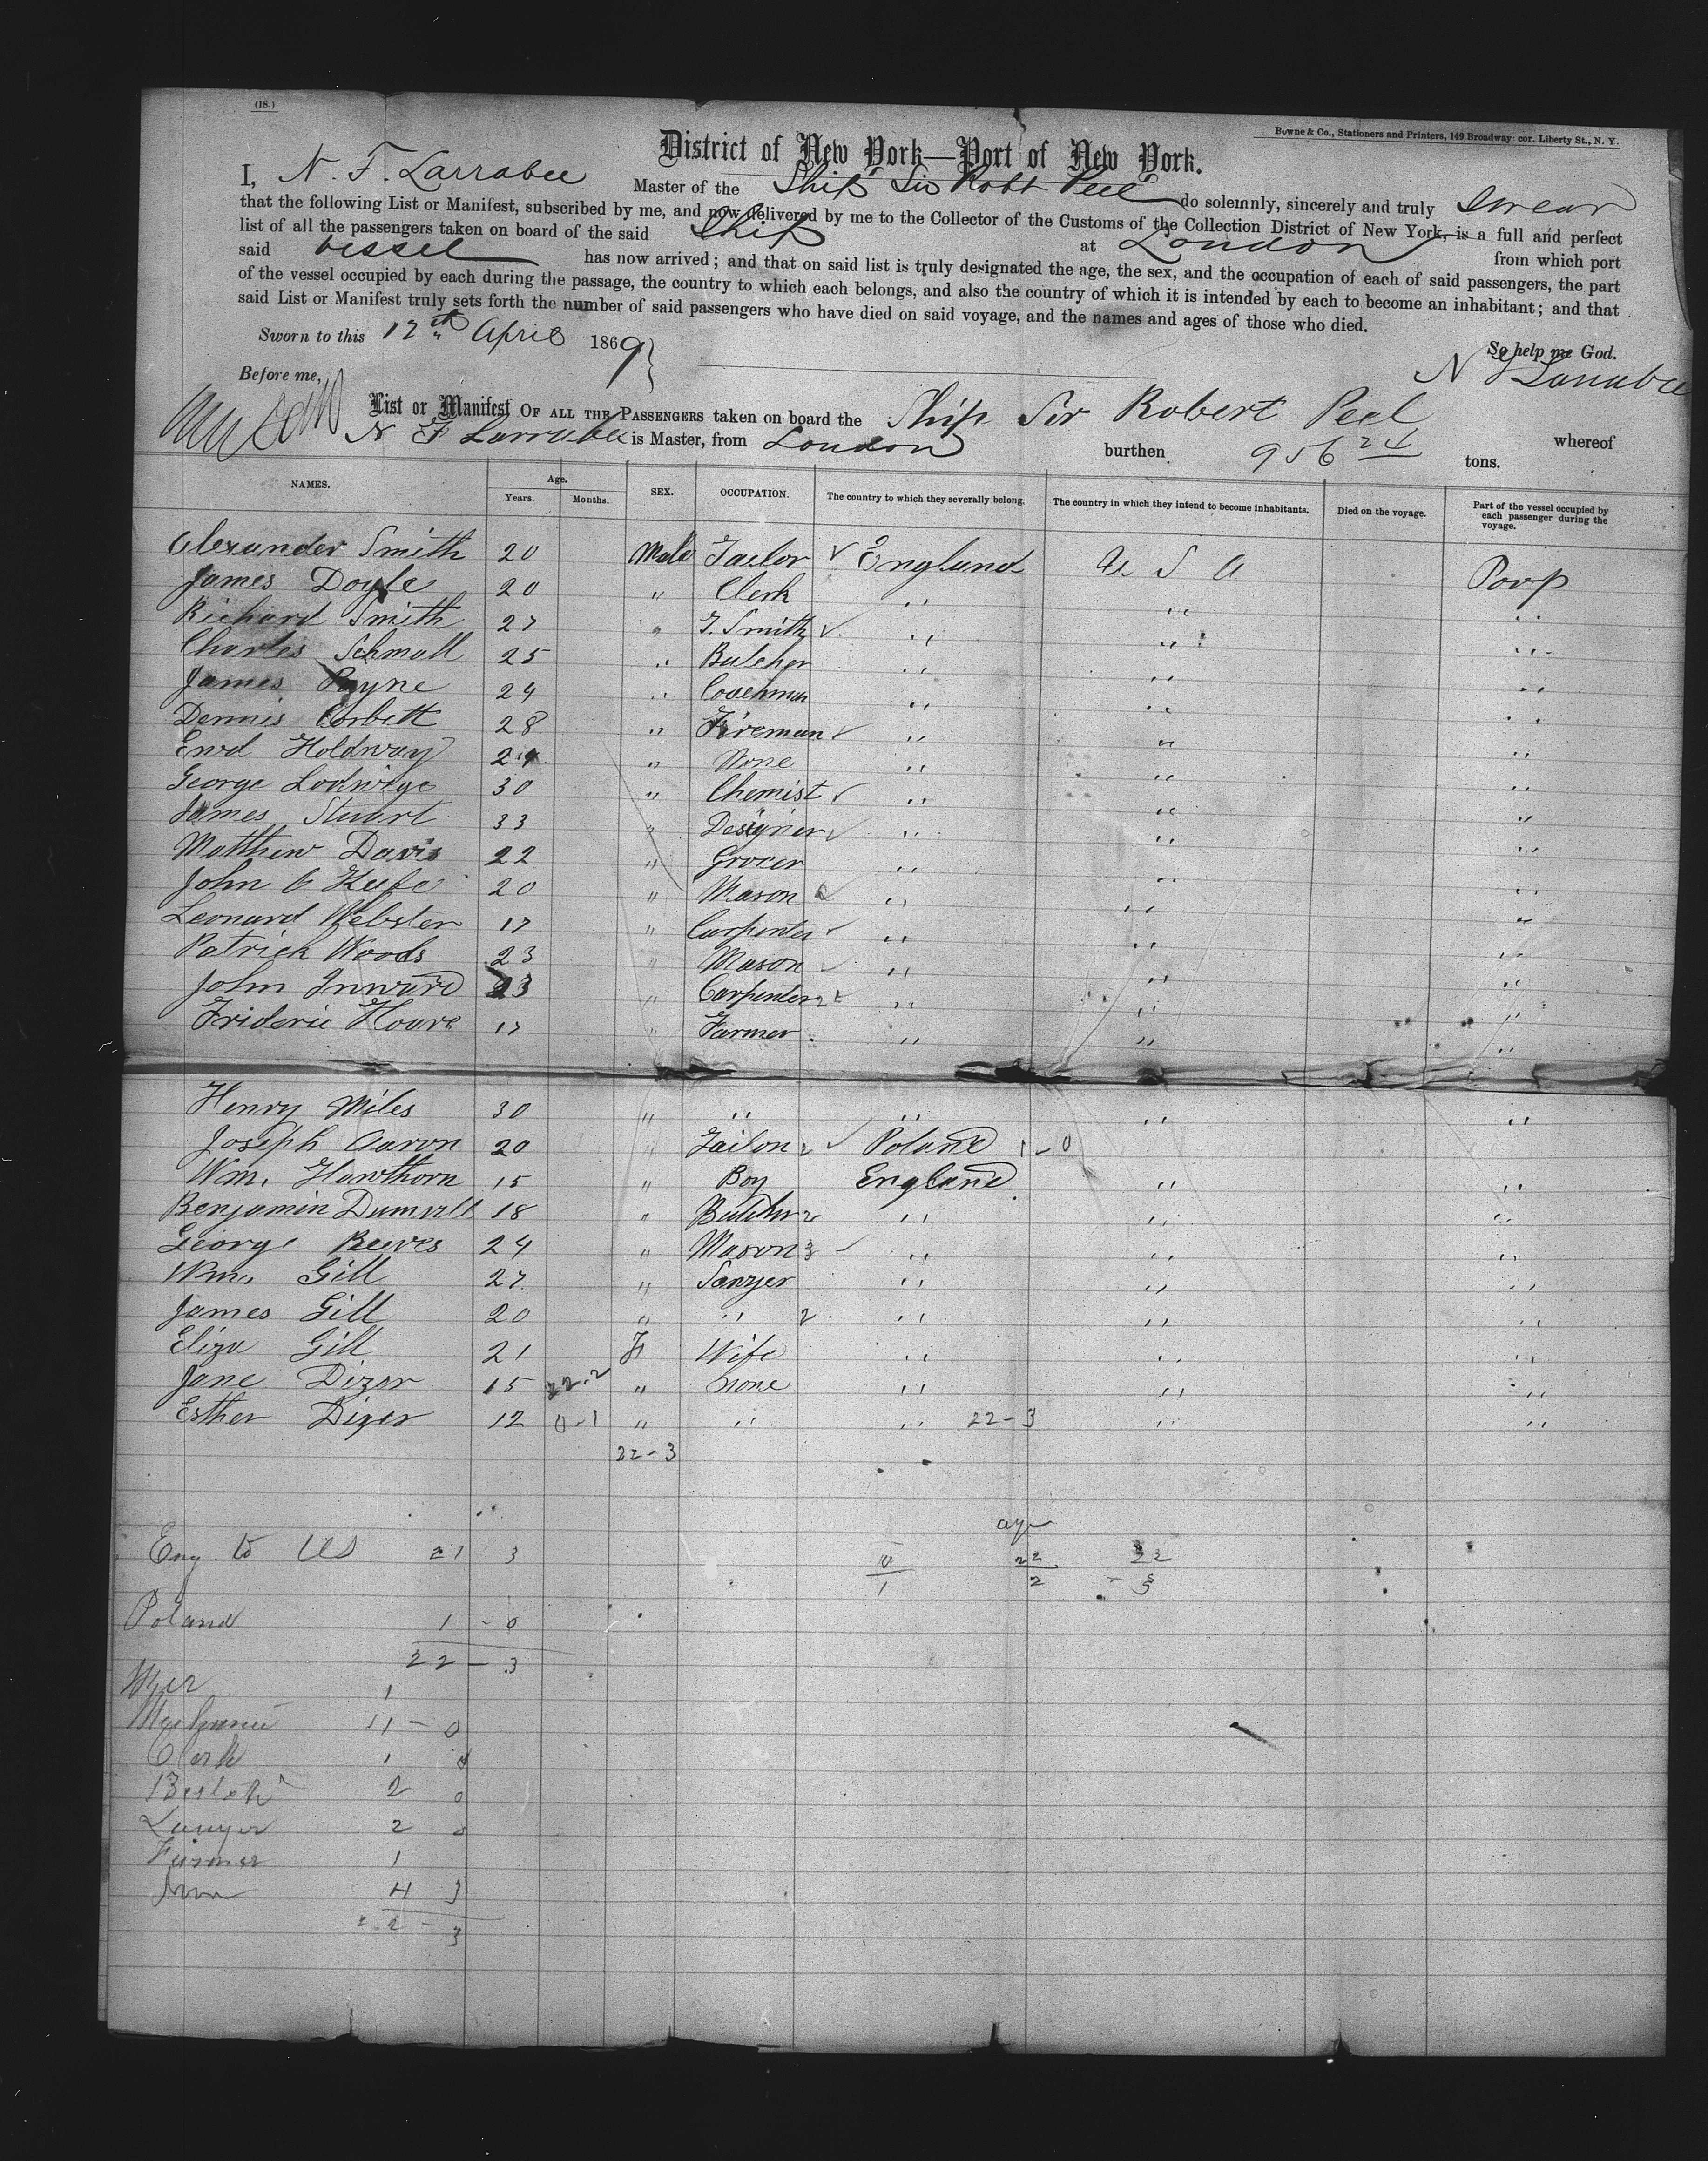 (18.)
Bowne & Co., Stationers and Printers, 149 Broadway cor. Liberty St., N. Y.
District of New York—Port of New York.
I, N. F. Larrabee Master of the Ship Sir Robt Peel do solemnly, sincerely and truly swear
that the following List or Manifest, subscribed by me, and now delivered by me to the Collector of the Customs of the Collection District of New York, is a full and perfect
list of all the passengers taken on board of the said Ship at London from which port
said vessel has now arrived; and that on said list is truly designated the age, the sex, and the occupation of each of said passengers, the part
of the vessel occupied by each during the passage, the country to which each belongs, and also the country of which it is intended by each to become an inhabitant; and that
said List or Manifest truly sets forth the number of said passengers who have died on said voyage, and the names and ages of those who died.
Sworn to this 12th April 1869 So help me God.
Before me, N F Larrabee
List or Manifest OF ALL THE PASSENGERS taken on board the Ship Sir Robert Peel whereof
N F Larrabee is Master, from London burthen 956 24 tons.
NAMES. Age. Years. Months. SEX. OCCUPATION. The country to which they severally belong. The country in which they intend to become inhabitants. Died on the voyage. Part of the vessel occupied by each passenger during the voyage.
Alexander Smith 20 Male Tailor England U S A Poop
James Doyle 20 " Clerk " " "
Richard Smith 27 " T. Smith " " "
Charles Schmall 25 " Butcher " " "
James Payne 24 " Coachman " " "
Dennis Corbett 28 " Fireman " " "
Enwd Holdway " None " " "
George Lodwige 30 " Chemist " " "
James Stuart 33 " Designer " " "
Matthew Davis 22 " Grocer " " "
John O Keefe 20 " Mason " " "
Leonard Webster 17 " Carpenter " " "
Patrick Woods 23 " Mason " " "
John Inward 23 " Carpenter " " "
Frideric Hoare 17 " Farmer " " "
Henry Miles 30 " " " " "
Joseph Aaron 20 " Tailor Poland 1-0
Wm. Hawthorn 15 " Boy England " "
Benjamin Dumvill 18 " Butcher " " "
George Reeves 24 " Mason " " "
Wm. Gill 27 " Sawyer " " "
James Gill 20 " " 2 " " "
Eliza Gill 21 F Wife " " "
Jane Dizer 15 22-2 " None " " "
Esther Dizer 12 0-1 " " " 22-3 " "
22-3
age
Eng. to US 21 3 22 22
1 2 - 3
Poland 1 - 0
22 - 3
1
11 - 0
Clerk 1
2 0
Sawyer 2 0
Farmer 1
4 3
22 - 3